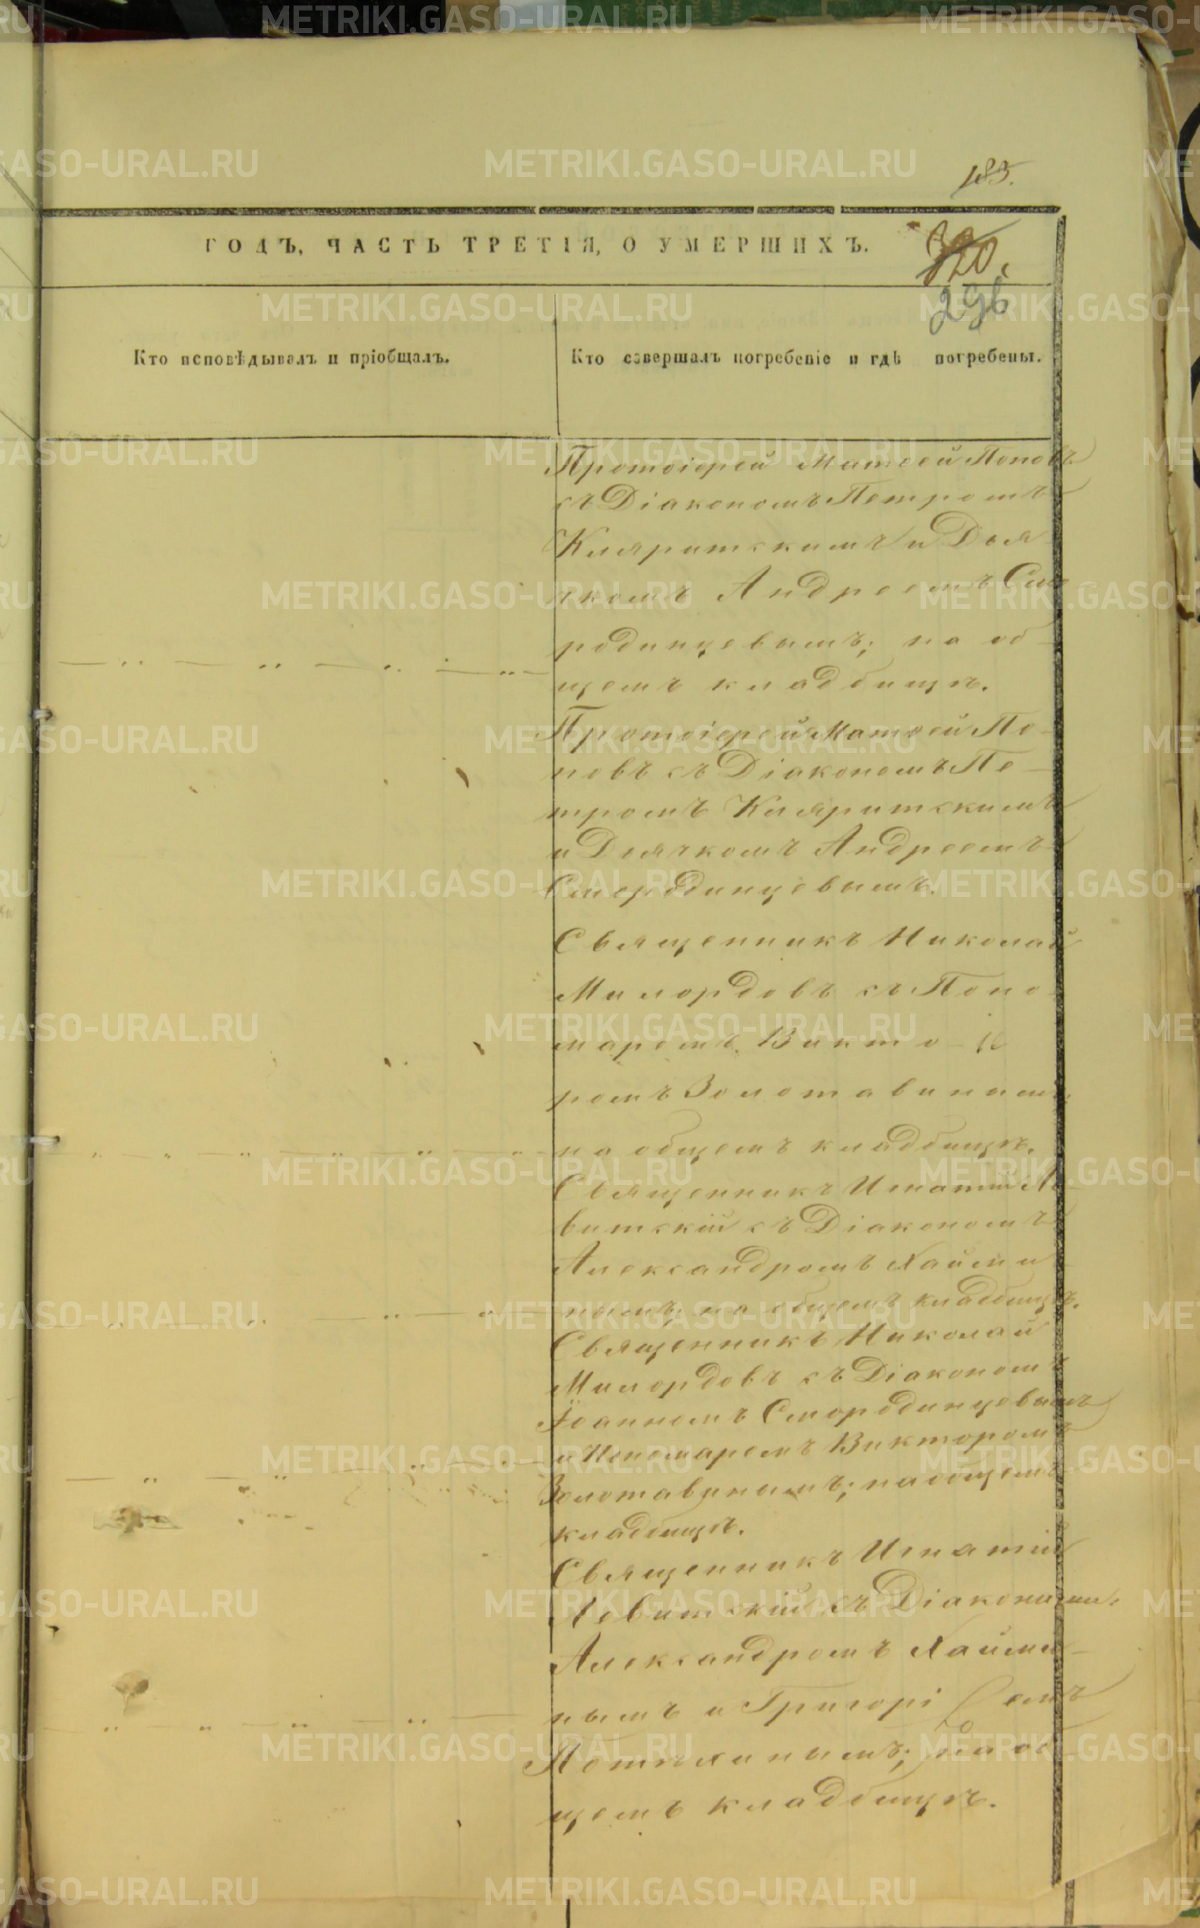 METRIKI.GASO-URAL.RU
185.
ГОДЪ, ЧАСТЬ ТРЕТІЯ, О УМЕРШИХЪ.
320.
296
Кто исповѣдывалъ и пріобщалъ.
Кто совершалъ погребеніе и гдѣ погребены.
Протоіерей Матѳей Поповъ
съ Діакономъ Петромъ
Кляритскимъ и Дья
чкомъ Андреемъ Смо
родинцевымъ; на об
щемъ кладбищѣ.
Протоіерей Матѳей По
повъ съ Діакономъ Пе
тромъ Кляритскимъ
и Дьячкомъ Андреемъ
Смородинцевымъ.
Священникъ Николай
Милордовъ съ Поно
маремъ Викто
ромъ Золотавинымъ;
на общемъ кладбищѣ.
Священникъ Игнатій Ле
витскій съ Діакономъ
Александромъ Хайми
нымъ; на общемъ кладбищѣ.
Священникъ Николай
Милордовъ съ Діакономъ
Іоанномъ Смородинцовымъ
и Пономаремъ Викторомъ
Золотавинымъ; на общемъ
кладбищѣ.
Священникъ Игнатій
Левитскій съ Діаконами:
Александромъ Хайми
нымъ и Григоріемъ
Потѣхинымъ; на об
щемъ кладбищѣ.